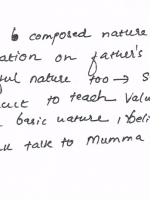 6 composed nature
ation on father's
ful nature too → S
uct to teach Valu
basic nature, beli
talk to Mumma